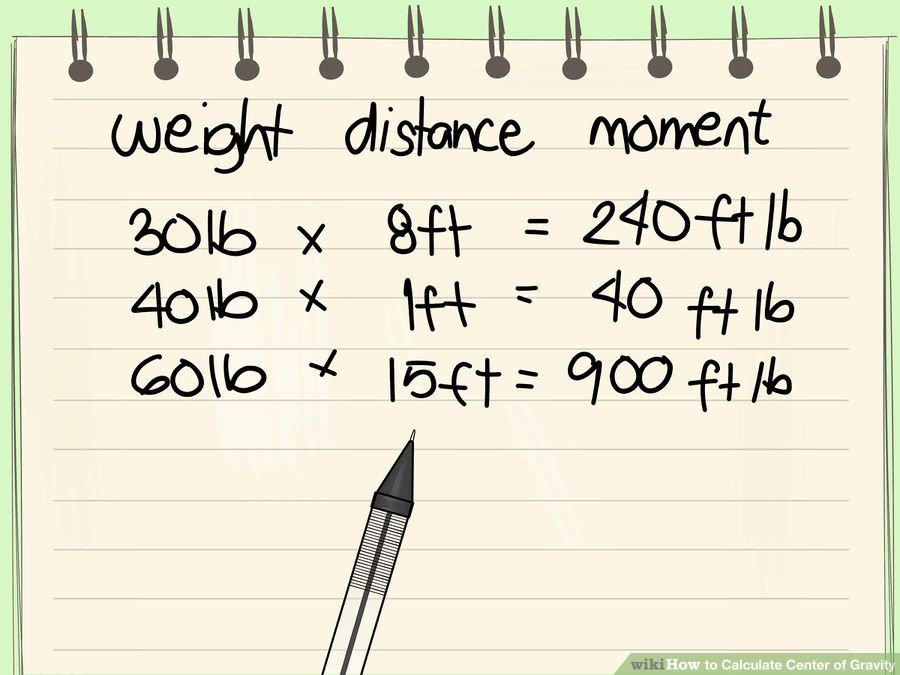 weight distance moment
30lb x 8ft = 240 ft lb
40lb x 1ft = 40 ft lb
60lb x 15ft = 900 ft lb
wikiHow to Calculate Center of Gravity